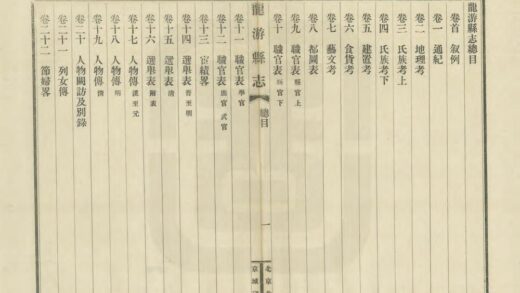 龍游縣志總目
卷首 叙例
卷一 通紀
卷二 地理考
卷三 氏族考上
卷四 氏族考下
卷五 建置考
卷六 食貨考
卷七 藝文考
卷八 都圖表
卷九 職官表 縣官上
卷十 職官表 縣官下
龍游縣志 總目 一
卷十一 職官表 學官
卷十二 職官表 武官
卷十三 宦績畧
卷十四 選舉表 晉至明
卷十五 選舉表 清
卷十六 選舉表
卷十七 人物傳 漢至元
卷十八 人物傳 明
卷十九 人物傳 清
卷二十 人物闕訪及別錄
卷二十一 列女傳
卷二十二 節婦畧